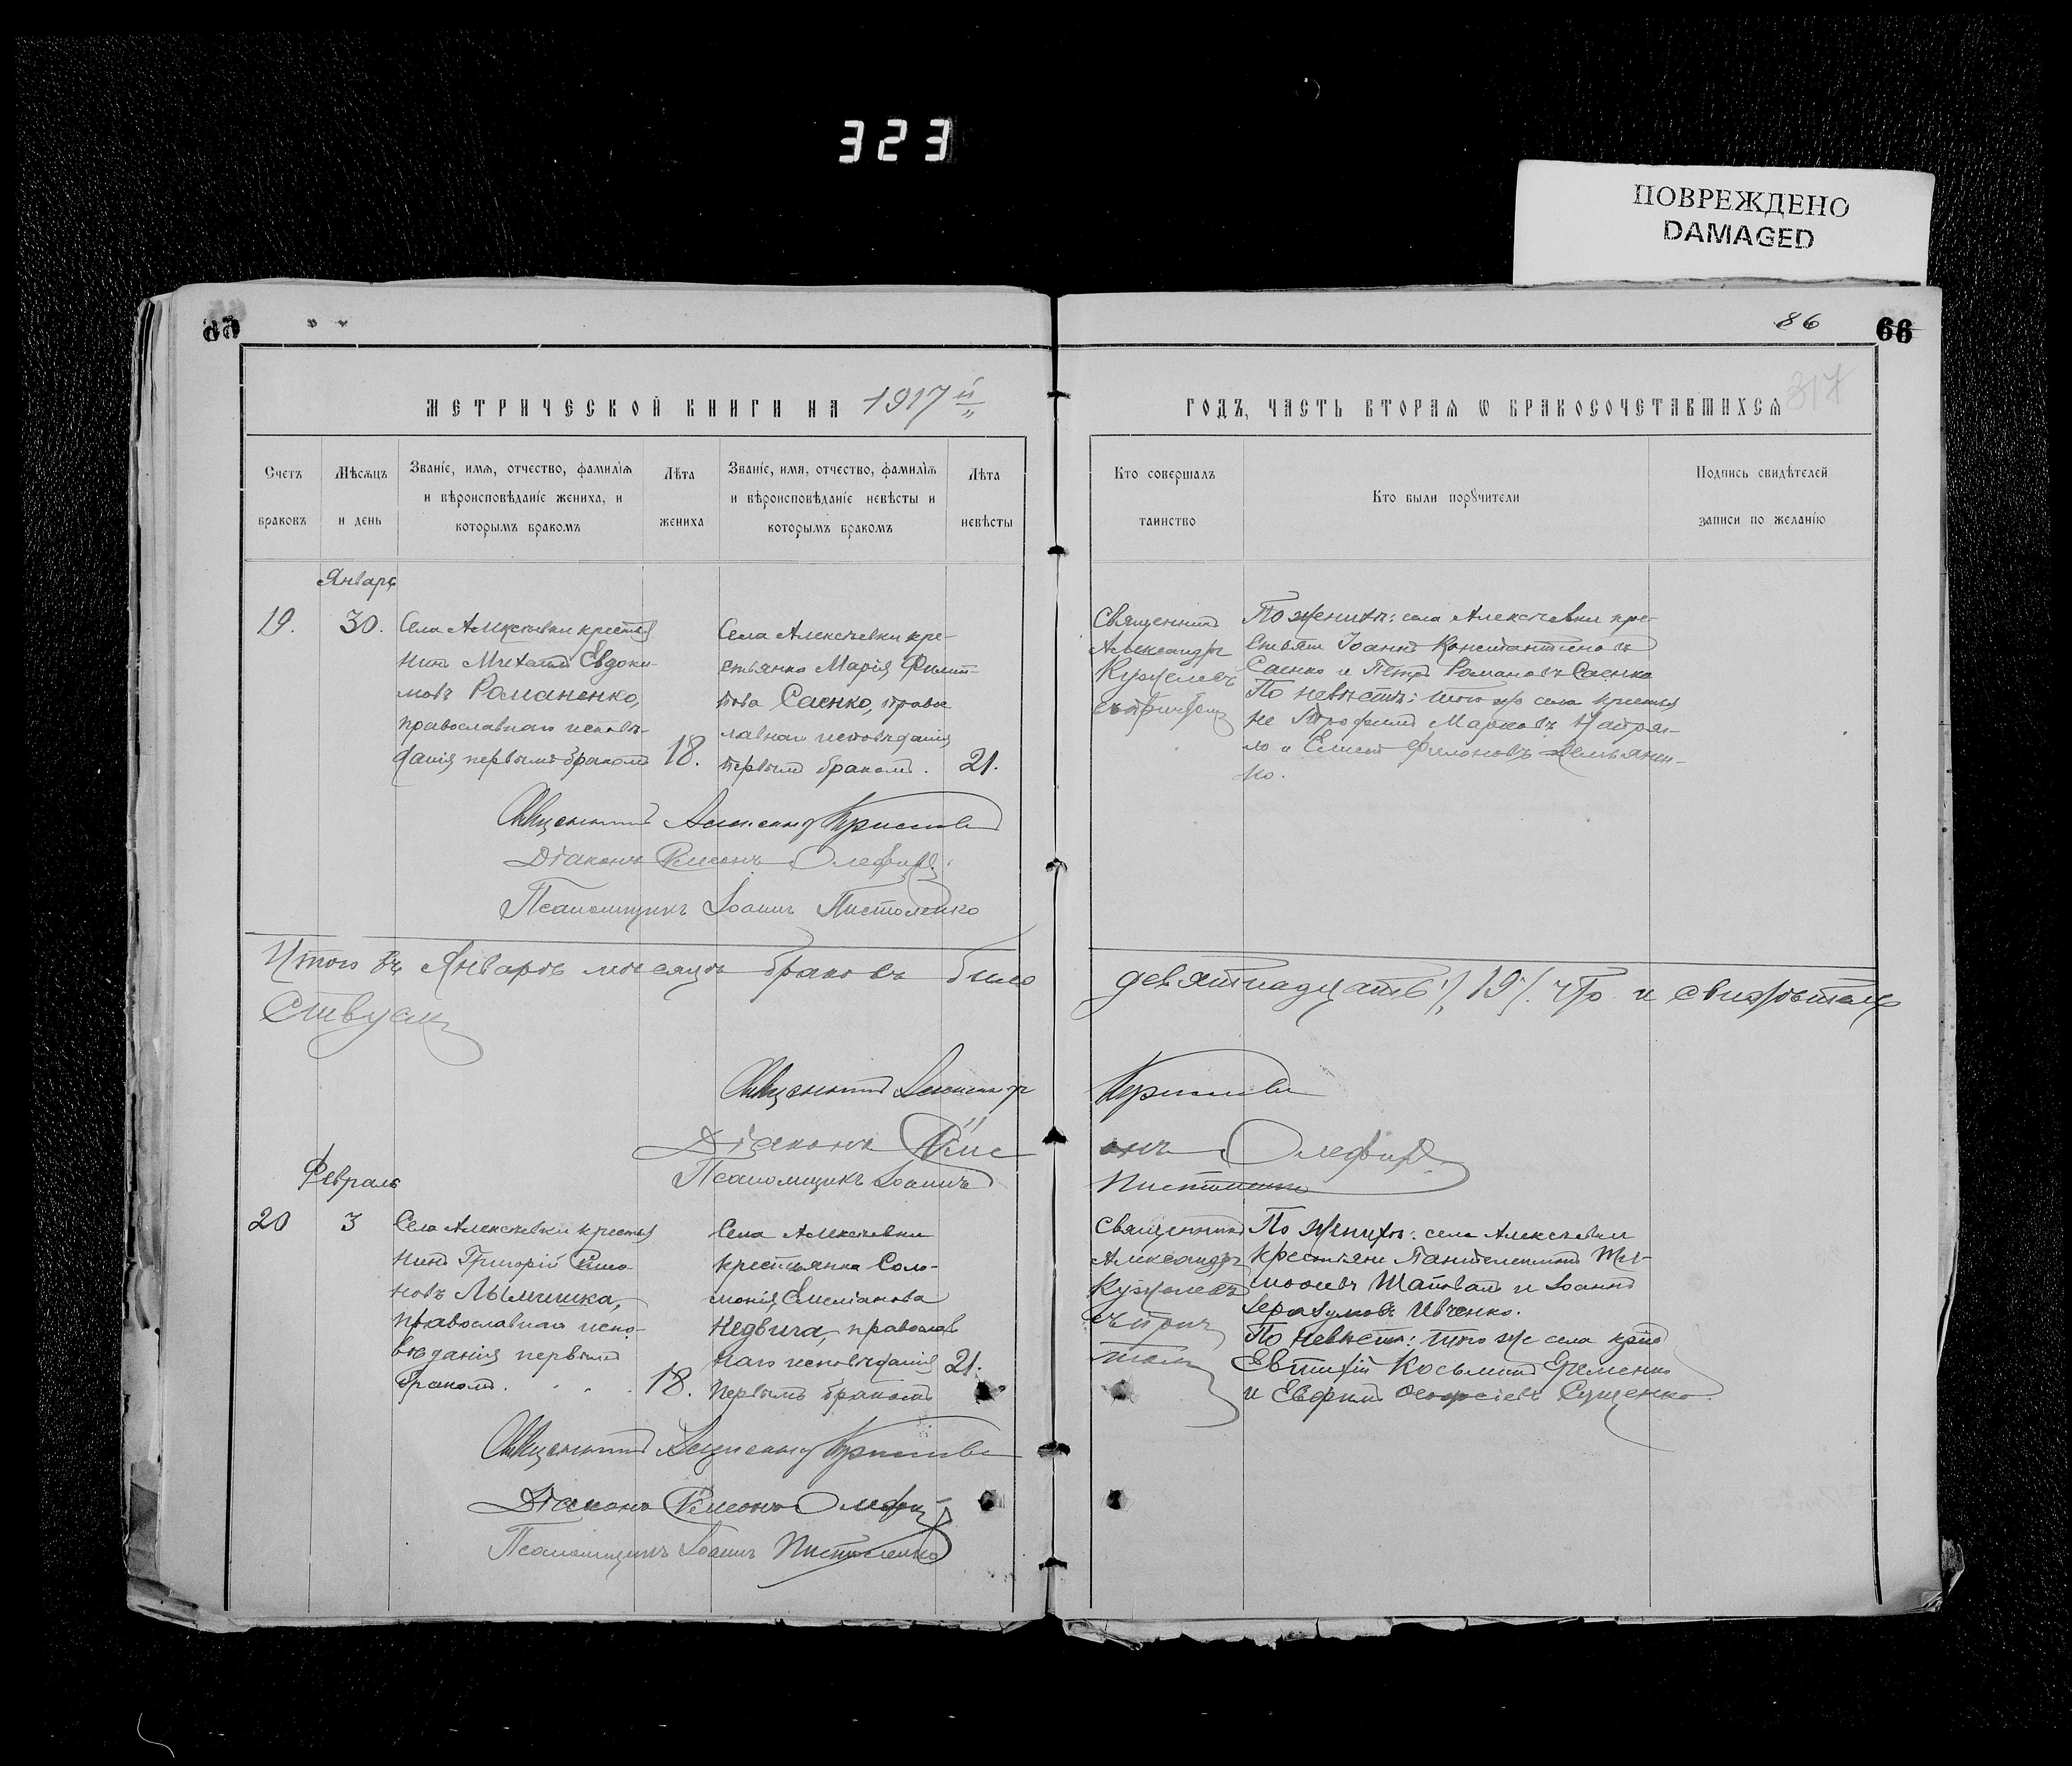 323
ПОВРЕЖДЕНО
DAMAGED
86
66
317
МЕТРИЧЕСКОЙ КНИГИ НА 1917й
ГОДЪ, ЧАСТЬ ВТОРАѦ Ѡ БРАКОСОЧЕТАВШИХСѦ
Счетъ
браковъ
Мѣсѧцъ
и день
Званіе, имѧ, отчество, фамиліѧ
и вѣроисповѣданіе жениха, и
которымъ бракомъ
Лѣта
жениха
Званіе, имя, отчество, фамиліѧ
и вѣроисповѣданіе невѣсты и
которымъ бракомъ
Лѣта
невѣсты
Кто совершалъ
таинство
Кто были порꙋчители
Подпись свидѣтелей
записи по желанію
Январь
19.
30.
Села Алексѣевки крестья
нинъ Михаилъ Евдоки-
мовъ Романенко,
православнаго исповѣ-
данія первымъ бракомъ
18.
Села Алексѣевки кре-
стьянка Марія Филип-
пова Саенко, право
славнаго исповѣданія
первымъ бракомъ.
21.
Священникъ
Александръ
съ причтомъ
По женихѣ: села Алексѣевки кре-
стьяне Іоаннъ Константиновъ
Саенко и Петръ Романовъ Саенко
По невѣстѣ: того же села крестья
не Трофимъ Марковъ
и Елисей Филоновъ Демьянен-
ко.
Священникъ Александръ
Діаконъ Симеонъ Олефиръ
Псаломщикъ Іоаннъ Пистоленко
Итого въ Январѣ мѣсяцѣ браковъ было
девятнадцать /19/. что и свидѣтель
ствуемъ
Священникъ Александръ
Діаконъ Симе
онъ Олефиръ
Псаломщикъ Іоаннъ
Пистоленко
Февраль
20
3
Села Алексѣевки крестья
нинъ Григорій Симо
новъ Лымишка,
православнаго испо-
вѣданія первымъ
бракомъ. . . .
18.
Села Алексѣевки
крестьянка Соло-
монія Емеліанова
Недвига, православ
наго исповѣданія
первымъ бракомъ
21.
Священникъ
Александръ
съ прич
томъ
По женихѣ: села Алексѣевки
крестьяне Пантелеимонъ Ти-
моѳеевъ Шаповалъ и Іоаннъ
Ивченко.
По невѣстѣ: того же села крне
Евтихій Косьминъ Еременко
и Евфимъ Сущенко.
Священникъ Александръ
Діаконъ Симеонъ Олефиръ
Псаломщикъ Іоаннъ Пистоленко